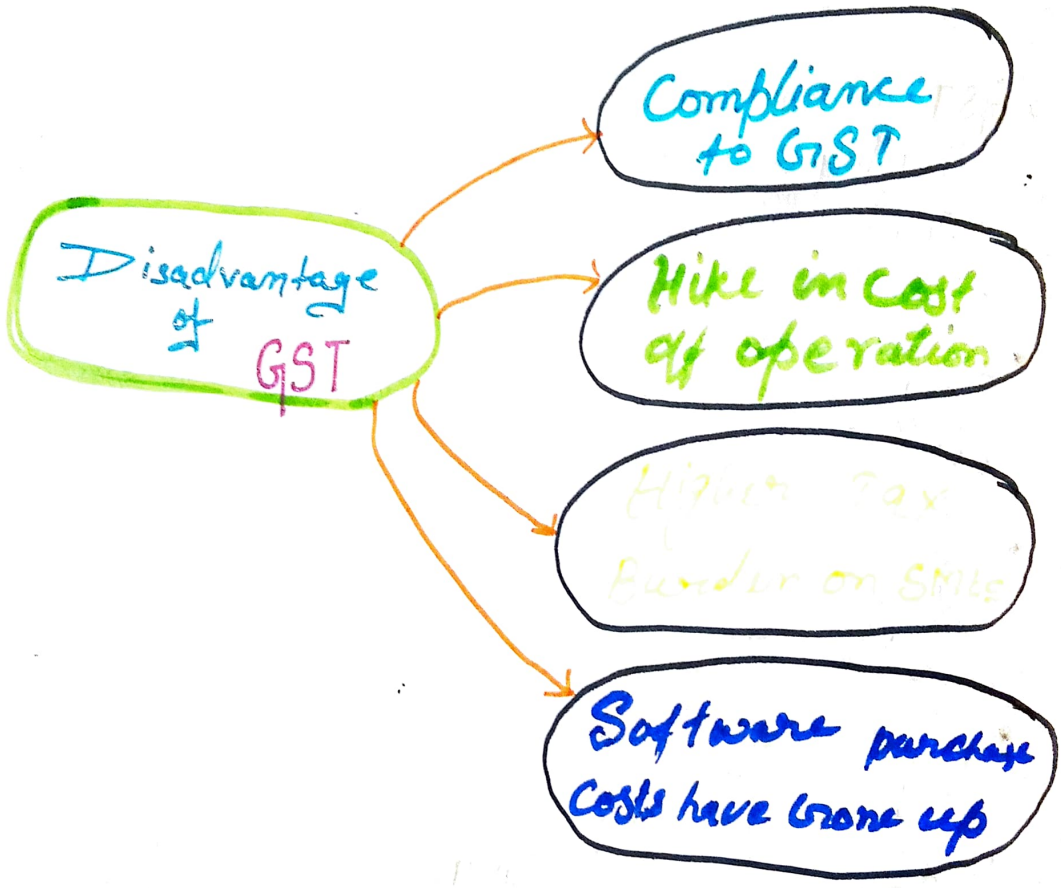 Disadvantage
of
GST
Compliance
to GST
Hike in cost
of operation
Higher Tax
Burden on SMEs
Software purchase
costs have Gone up